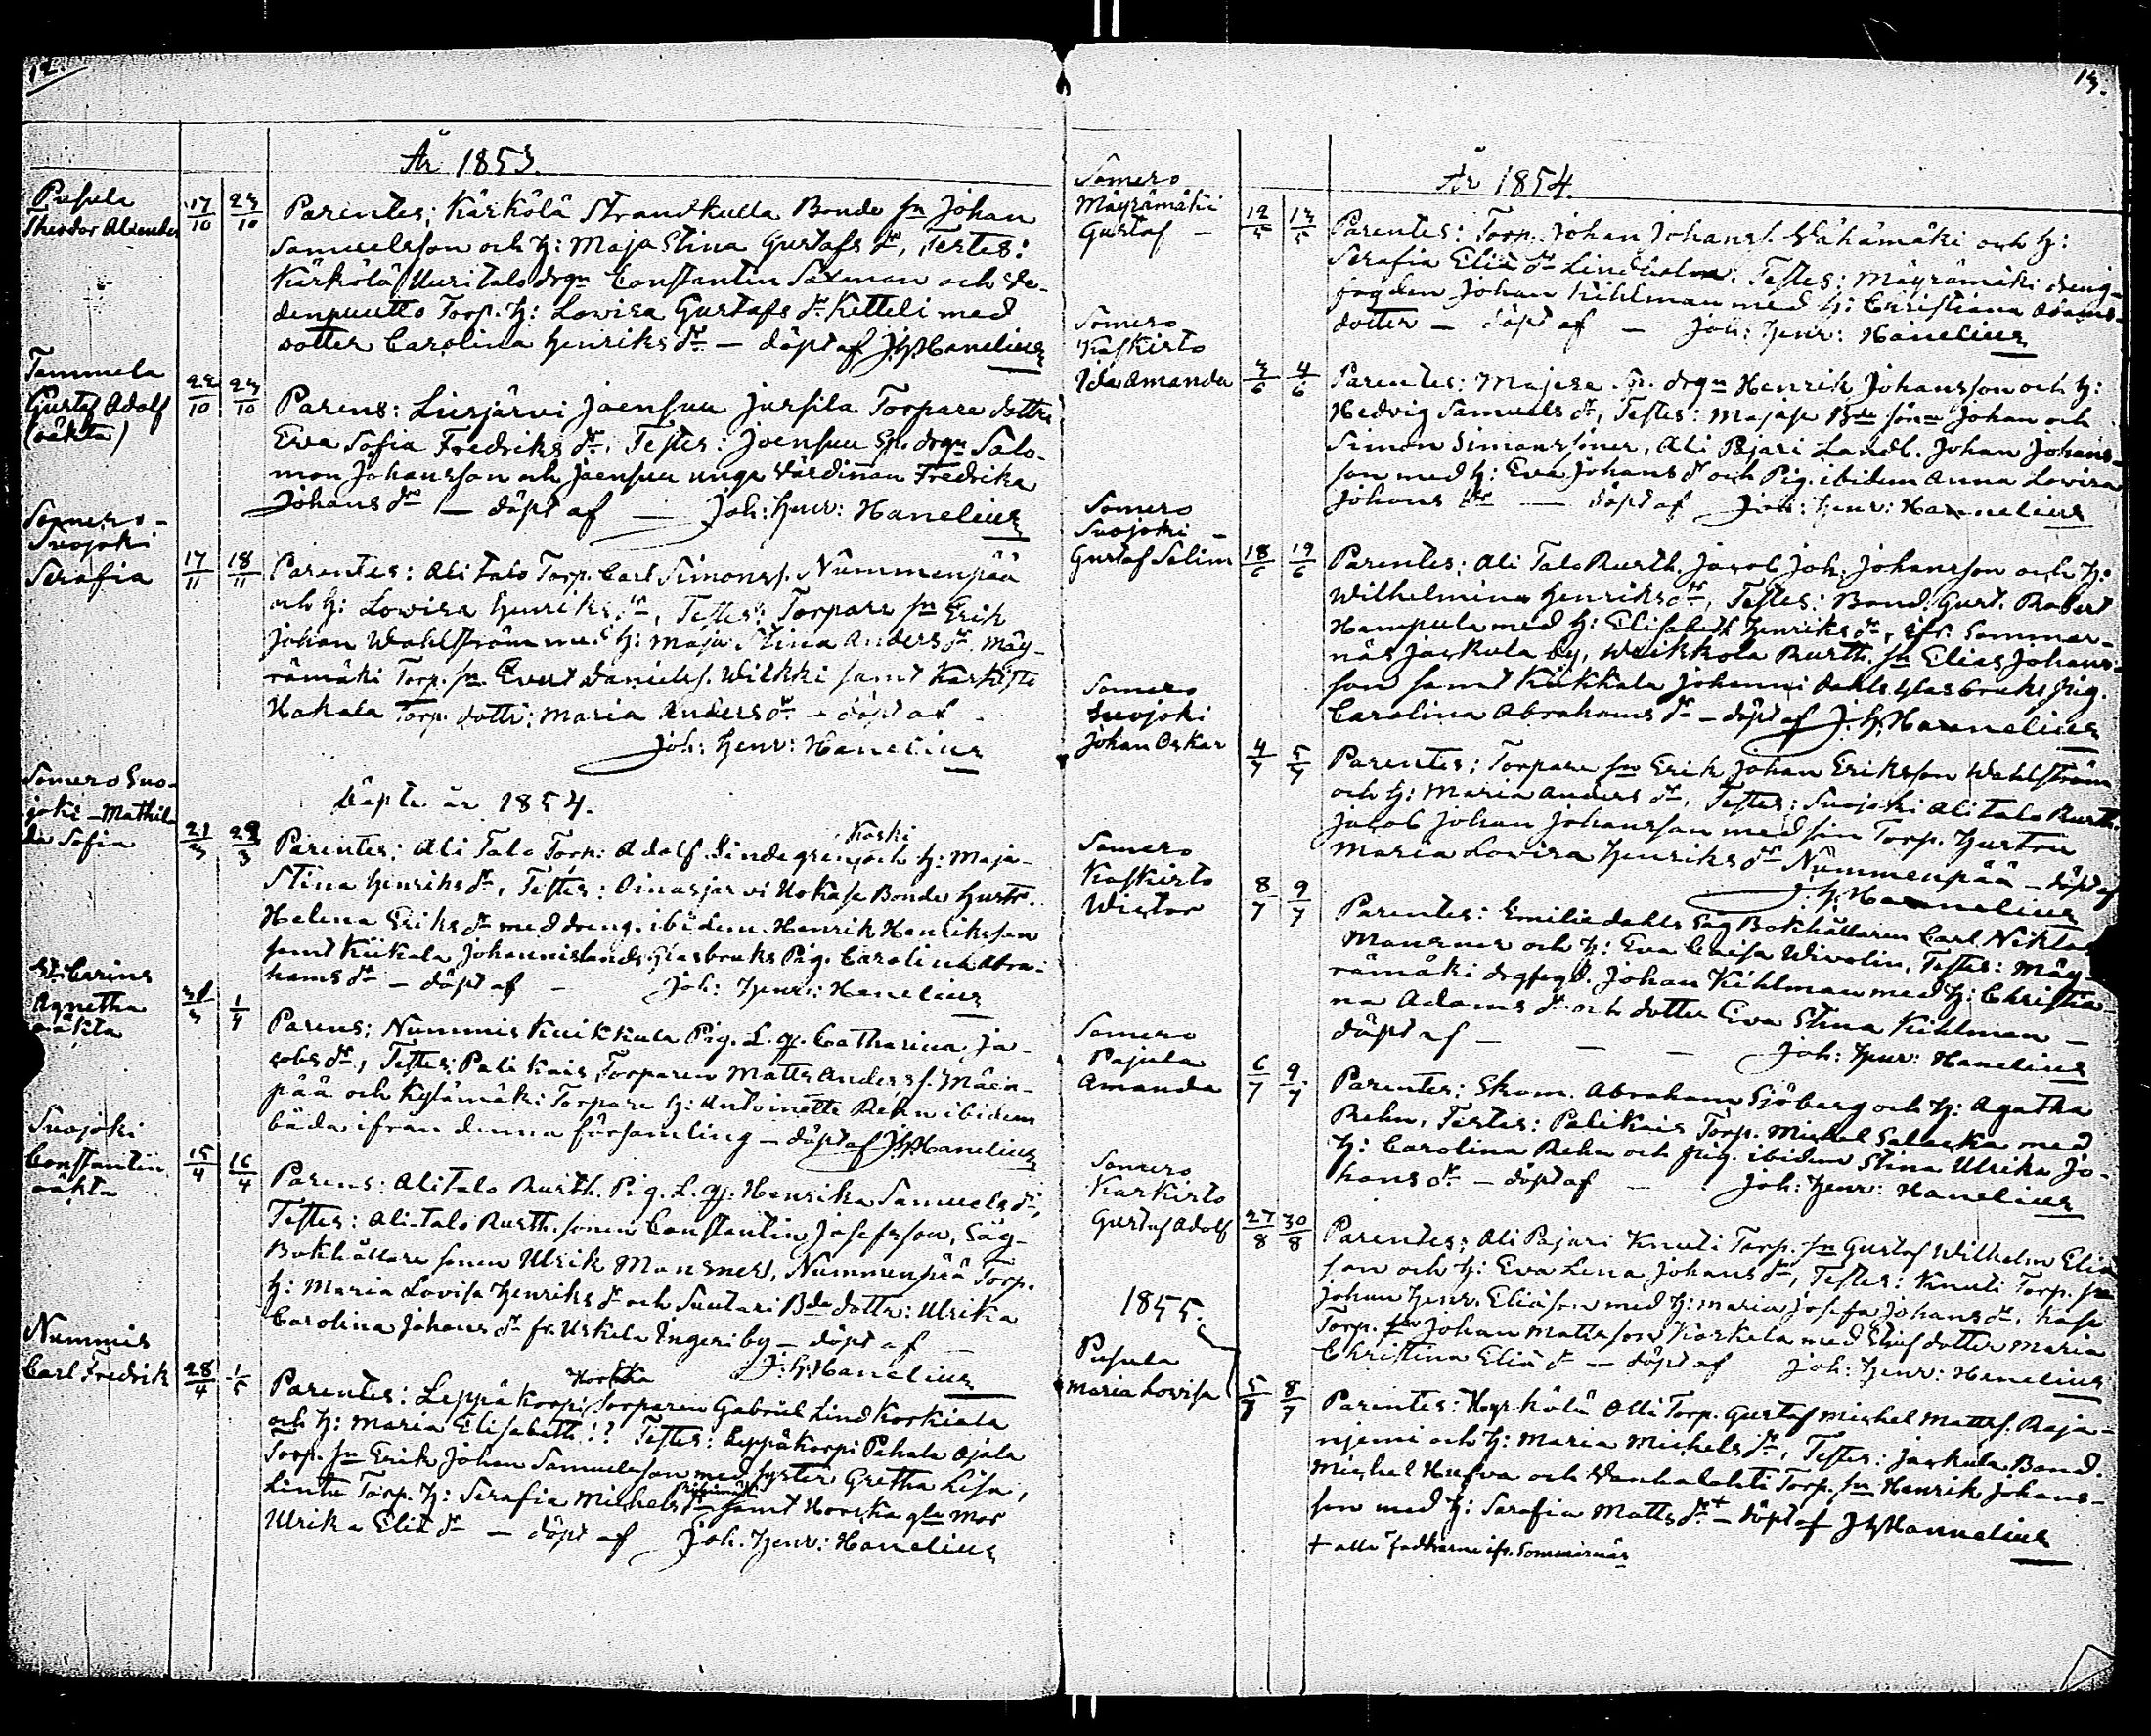 12.
År 1853.
Pusula
Theodor Alexander
17/10 23/10
Parentes: Kärkölä Strandkulla Bonde sn Johan
Samuelsson och H: Maja Stina Gustafs dr, Testes:
Kärkölä Uuritalo drgn Constantin Saxman och Ve-
denpuutto Torp. H: Lovisa Gustafs dr Ketteli med
dotter Carolina Henriks dr — döpt af J.H. Hanelius
Tammela
Gustaf Adolf
(oäkta)
22/10 23/10
Parens: Liesjärvi Joensuu Jussila Torpare dottr
Eva Sofia Fredriks dr. Testes: Joensuu Sn. drgn Salo-
mon Johansson och Joensuu unga Värdinnan Fredrika
Johans dr — döpt af — Joh: Henr: Hanelius
Somero-
Suojoki
Serafia
17/11 18/11
Parentes: Ali Talo Torp. Carl Simonss. Nummenpää
och H: Lovisa Henriks dr, Testes: Torpare sn Erik
Johan Wahlström med H: Maja Stina Anders dr. Mäy-
rämäki Torp. sn. Evert Daniels. Wilkki samt Karkisto
Hakala Torp. dottr: Maria Anders dr — döpt af -
Joh: Henr: Hanelius
Döpte år 1854.
Somero Suo-
joki - Mathil-
da Sofia
21/3 22/3
Kaski
Parentes: Ali Talo Torp: Adolf Lindegren, och H: Maja-
Stina Henriks dr, Testes: Oinasjarvi Uokasa Bonde Hustr.
Helena Eriks dr med dreng. ibidem. Henrik Henriksson
samt Kiikala Johannislunds Glasbruks Pig. Carolina Abra-
hams dr — döpt af - Joh: Henr: Hanelius
St. Carins
Agnetha
oäkta
31/3 1/4
Parens: Nummis Kuikkula Pig. L. qp. Catharina Ja-
cobs dr, Testes: Pali Kais Torparen Matts Anderss. Mäen-
pää och Kylämäki Torpare H: Antoinette Rehn ibidem
båda ifrån denna församling — döpt af J.H. Hanelius
Suojoki
Constantin
oäkta
15/4 16/4
Parens: Ali Talo Rusth. Pig. L. qp: Henrika Samuels dr,
Testes: Ali-Talo Rusth. sonen Constantin Josefsson, Såg-
Bokhållare sonen Ulrik Mansner, Nummenpää Torp.
H: Maria Lovisa Henriks dr och Suutari Bde dottr: Ulrika
Carolina Johans dr fr. Uskela Ingeri by — döpt af —
J: H: Hanelius
Nummis
Carl Fredrik
28/4 1/5
Parentes: Leppäkorpi, Torparen Gabriel Lind Korkiala
och H: Maria Elisabeth!? Testes: Leppäkorpi Pahala Ojala
Torp. sn Erik Johan Samuelsson med syster Gretha Lisa,
Lintu Torp. H: Serafia Michels dr samt Horska gla Mor
Ulrika Eliæ dr — döpt af Joh. Henr: Hanelius
13.
År 1854.
Somero
Mäyrämäki
Gustaf -
12/5 13/5
Parentes: Torp. Johan Johans s. Wähämäki och H:
Serafia Eliæ dr Lindholm. Testes: Mäyrämäki dreng-
fogden Johan Kihlman med H: Christiana Adams-
dotter — döpt af — Joh: Henr: Hanelius
Somero
Kaskisto
Ida Amanda
3/6 4/6
Parentes: Majase Sn. drgn Henrik Johansson och H:
Hedvig Samuels dr, Testes: Majase Bde sönr Johan och
Simon Simonssöner, Ali Pajari Landb. Johan Johans-
son med H: Eva Johans dr och Pig. ibidem Anna Lovisa
Johans dr — döpt af Joh: Henr: Hannelius
Somero
Suojoki -
Gustaf Selim
18/6 19/6
Parentes: Ali Talo Rusth. Jacob Joh: Johansson och H:
Wilhelmina Henriks dr, Testes: Bond. Gust. Robert
Hampula med H: Elisabeth Henriks dr, ifr. Sommar-
näs Jaskula by, Weikkola Rusth. sn Elias Johans-
son samt Kiikkala Johanni dahls Glasbruks pig.
Carolina Abrahams dr — döpt af J: H: Hannelius
Somero
Suojoki
Johan Oskar
4/7 5/7
Parentes: Torpare sn Erik Johan Eriksson Wahlström
och H: Maria Anders dr, Testes: Suojoki Ali Talo Rusth.
Jacob Johan Johansson med sin Torp. Hustru
Maria Lovisa Henriks dr Nummenpää — döpt af
J. H. Hannelius
Somero
Kaskisto
Wictor
8/7 9/7
Parentes: Emiliedahls Såg Bokhållaren Carl Niklas
Mansner och H: Eva Caisa Wivolin, Testes: Mäy-
rämäki drgfogd. Johan Kihlman med H: Christia-
na Adams dr och dotter Eva Stina Kihlman —
döpt af — — — Joh: Henr: Hanelius
Somero
Pajula
Amanda
6/7 9/7
Parentes: Skom. Abraham Sjöberg och H: Agatha
Rehn, Testes: Palikais Torp. Michel Salaska med
H: Carolina Rehn och pig. ibidem Stina Ulrika Jo-
hans dr — döpt af — Joh: Henr: Hanelius
Somero
Karkisto
Gustaf Adolf
27/8 30/8
Parentes: Ali Pajari Knuti Torp. sn Gustaf Wilhelm Elia
son och H: Eva Lena Johans dr, Testes: Knuti Torp. sn
Johan Henr. Eliason med H: Maria Josefa Johans dr, Kasa
Torp. sn Johan Mattsson Karkela med Elias dotter Maria
Christina Eliæ dr — döpt af Joh: Henr: Hanelius
1855.
Pusula
Maria Lovisa
5/7 8/7
Parentes: Kyrkölä Olli Torp. Gustaf Michel Matts s. Raja-
njemi och H: Maria Michels dr, Testes: Jaskula Bond.
Michel Hufva och Vanhalahti Torp. sn Henrik Johans-
son med H: Serafia Matts dr + — döpt af J H Hannelius
+ alla faddrarne ifr. Sommarnäs